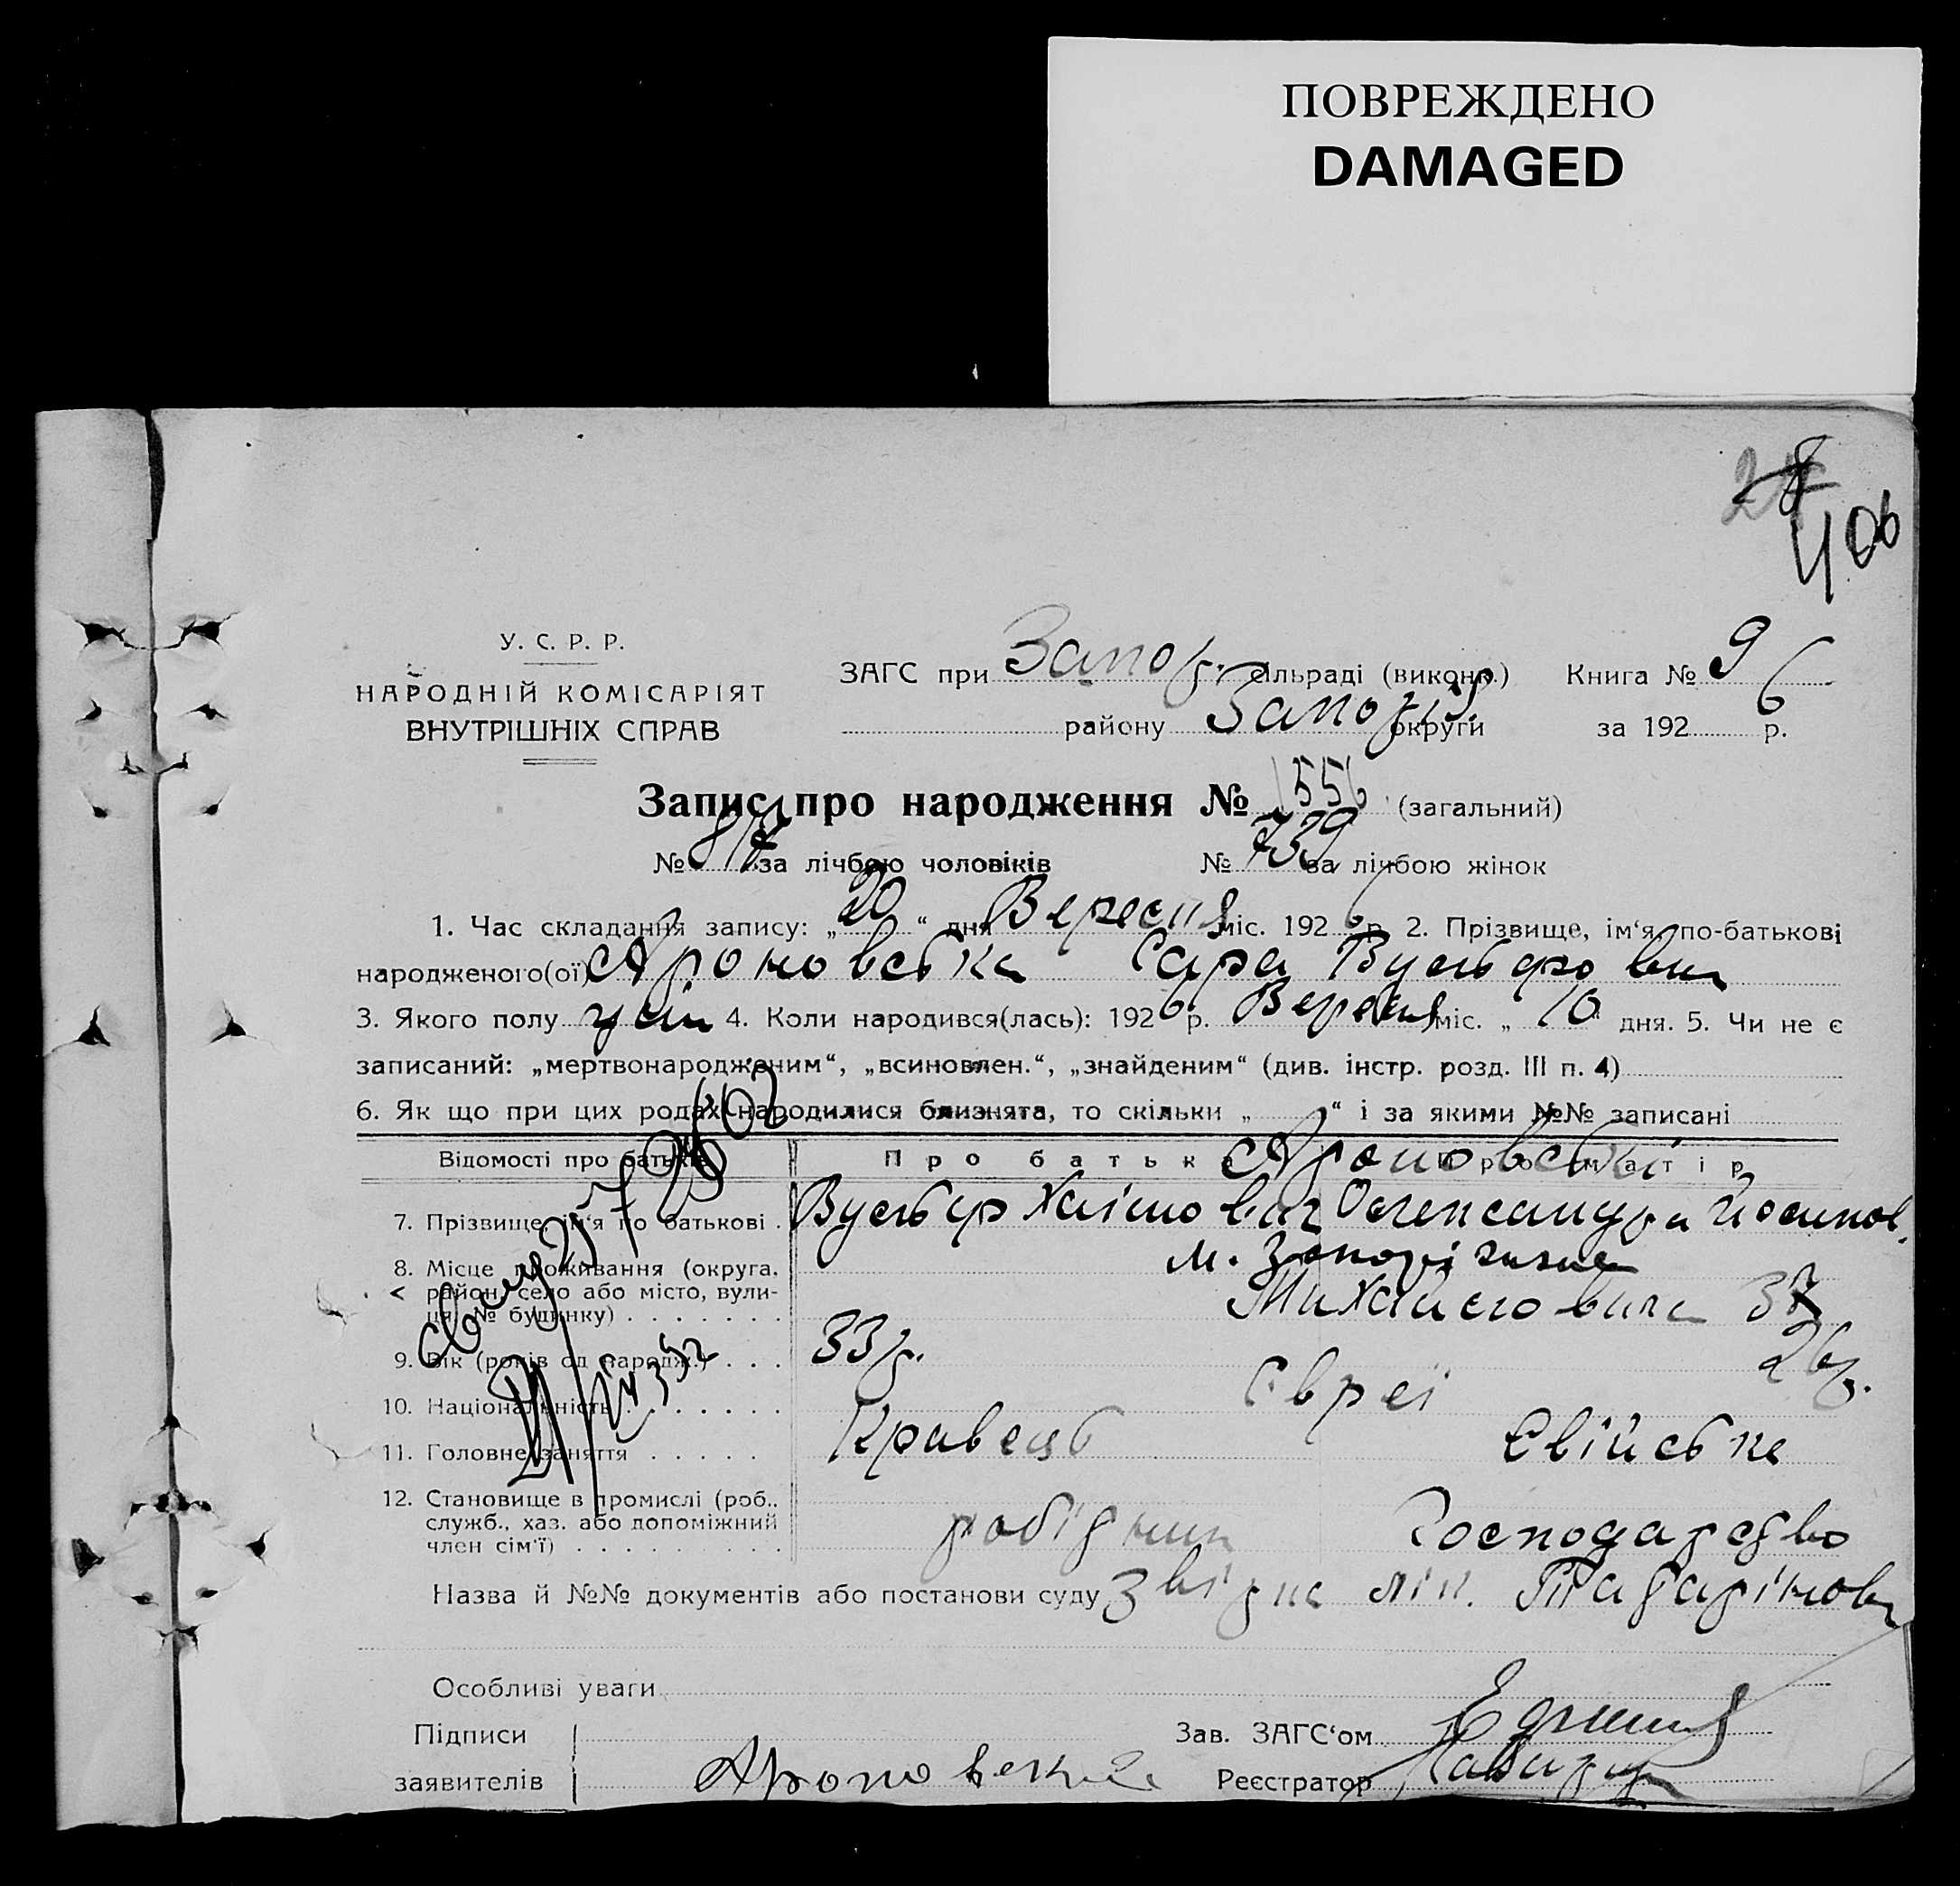 ПОВРЕЖДЕНО
DAMAGED
406
У. С. Р. Р.
НАРОДНІЙ КОМІСАРІЯТ
ВНУТРІШНІХ СПРАВ
ЗАГС при Запор. сільраді (виконк.) Книга № 9
району Запоріз. округи за 1926 р.
Запис про народження № 1556 (загальний)
№ 817 за лічбою чоловіків № 739 за лічбою жінок
1. Час складання запису: „20“ дня Вересня міс. 1926 р. 2. Прізвище, ім‘я, по-батькові
народженого(ої) Ароновська Сара Вульфовна
3. Якого полу жін 4. Коли народився(лась): 1926 р. Вересня міс. „10 дня. 5. Чи не є
записаний: „мертвонародженим“, „всиновлен.“, „знайденим“ (див. інстр. розд. III п. 4)
6. Як що при цих родах народилися близнята, то скільки „ “ і за якими №№ записані
Відомості про батьків Про батька Про матір
Ароновські
7. Прізвище, ім‘я по батькові . Вульф Хаімович Олександра Йосипов.
8. Місце проживання (округа, район, село або місто, вулиця, № будинку) м. Запоріжжя
Михайловича 37
9. Вік (років од народж.) 33 р. 26 р.
10. Національність Євреї
11. Головне заняття Кравець Свійське
12. Становище в промислі (роб., служб., хаз. або допоміжний член сім‘ї) робідник Господарство
Назва й №№ документів або постанови суду Звідка лік.
Особливі уваги
Підписи Зав. ЗАГС‘ом
заявителів Ароновский Реєстратор